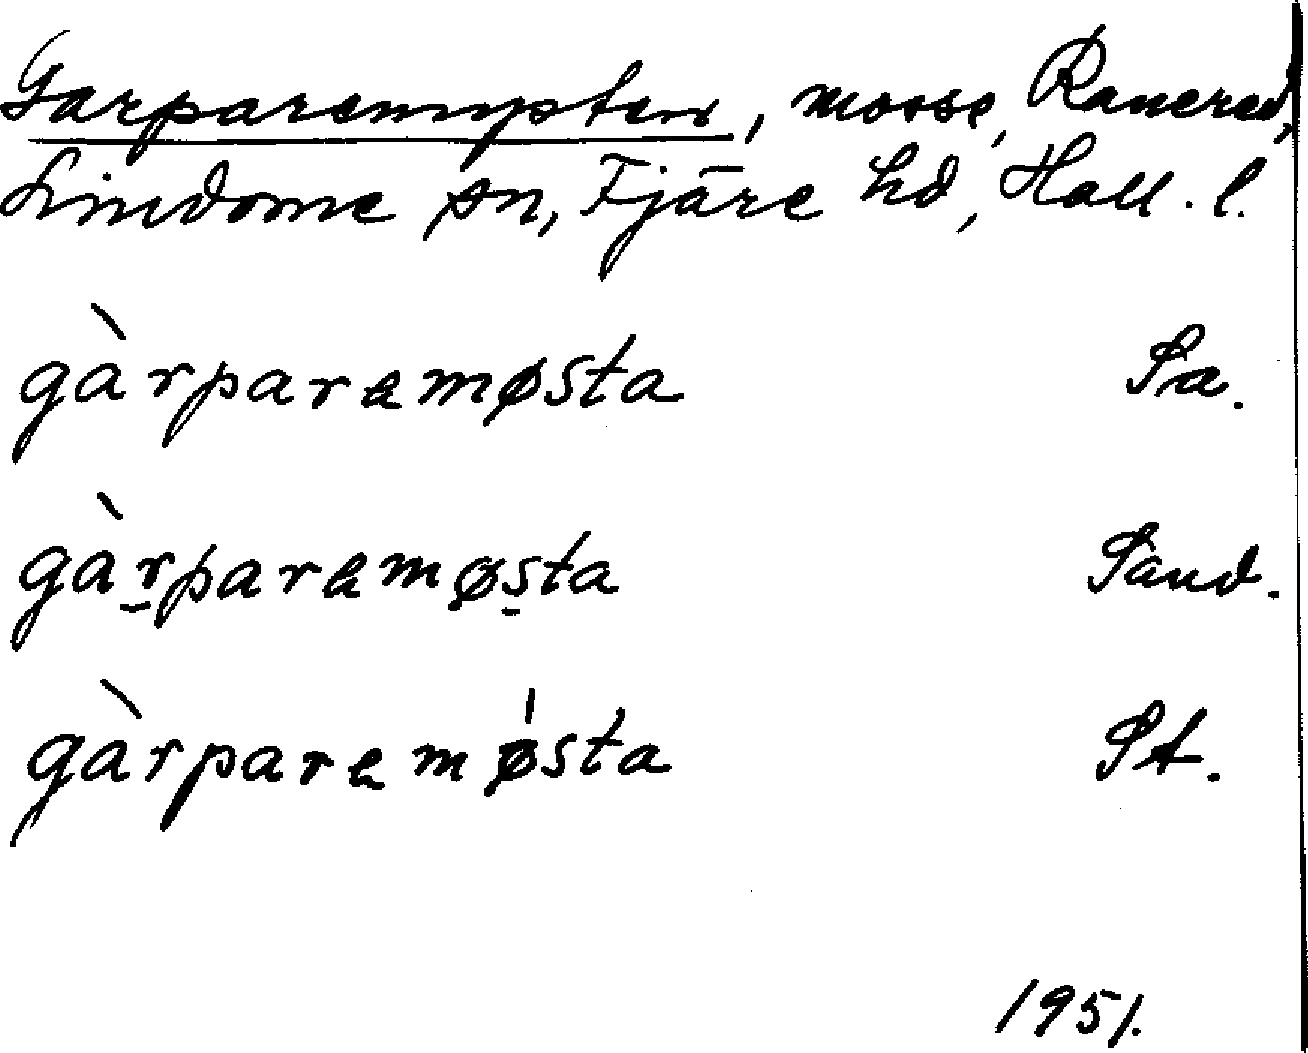 Garparemysten, mosse, Ranered,
Lindome sn, Fjäre hd, Hall. l.
gàrparamøsta Sa.
gàrparamøsta Sand.
gàrparamǿsta St.
1951.